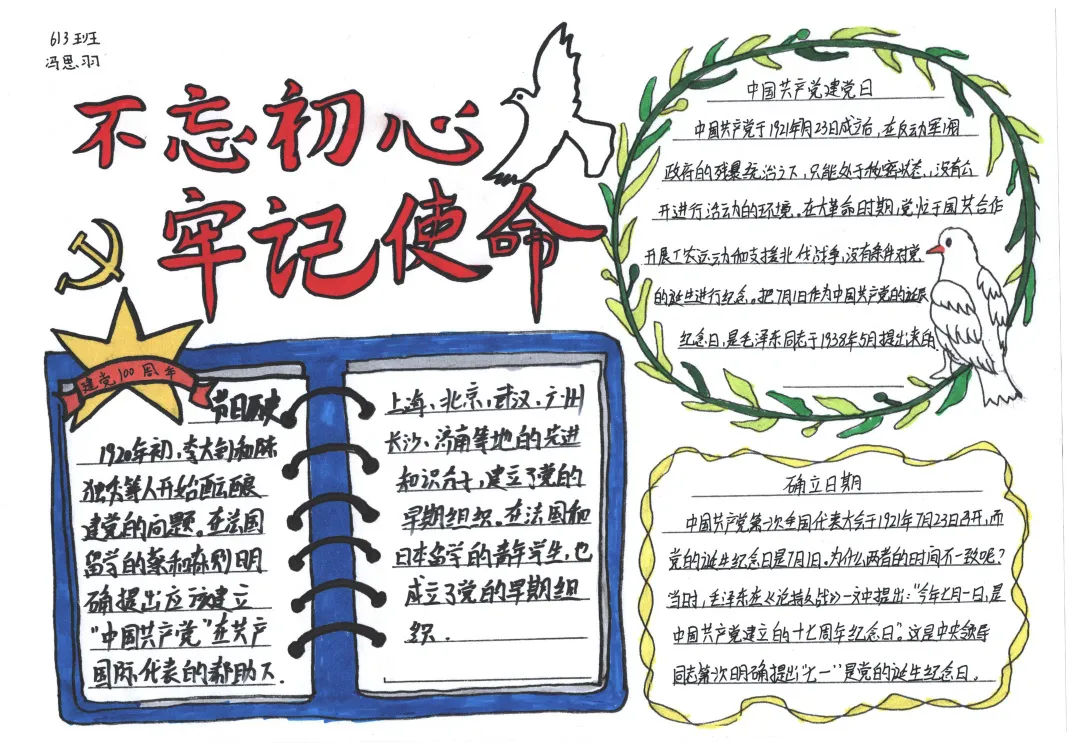 613班
冯思羽
不忘初心
牢记使命
建党100周年
节日历史
1920年初，李大钊和陈
独秀等人开始酝酿
建党的问题。在法国
留学的蔡和森则明
确提出应该建立
“中国共产党”在共产
国际代表的帮助下.
上海、北京、武汉、广州
长沙、济南等地的先进
知识分子，建立了党的
早期组织。在法国和
日本留学的青年学生，也
成立了党的早期组
织.
中国共产党建党日
中国共产党于1921年7月23日成立后，在反动军阀
政府的残暴统治之下，只能处于秘密状态，没有公
开进行活动的环境。在大革命时期，党忙于国共合作
开展工农运动和支援北伐战争，没有条件对党
的诞生进行纪念。把7月1日作为中国共产党的诞辰
纪念日，是毛泽东同志于1938年5月提出来的
确立日期
中国共产党第一次全国代表大会于1921年7月23日召开，而
党的诞生纪念日是7月1日。为什么两者的时间不一致呢？
当时，毛泽东在《论持久战》一文中提出：“今年七月一日，是
中国共产党建立的十七周年纪念日”。这是中央领导
同志第一次明确提出“七一”是党的诞生纪念日。